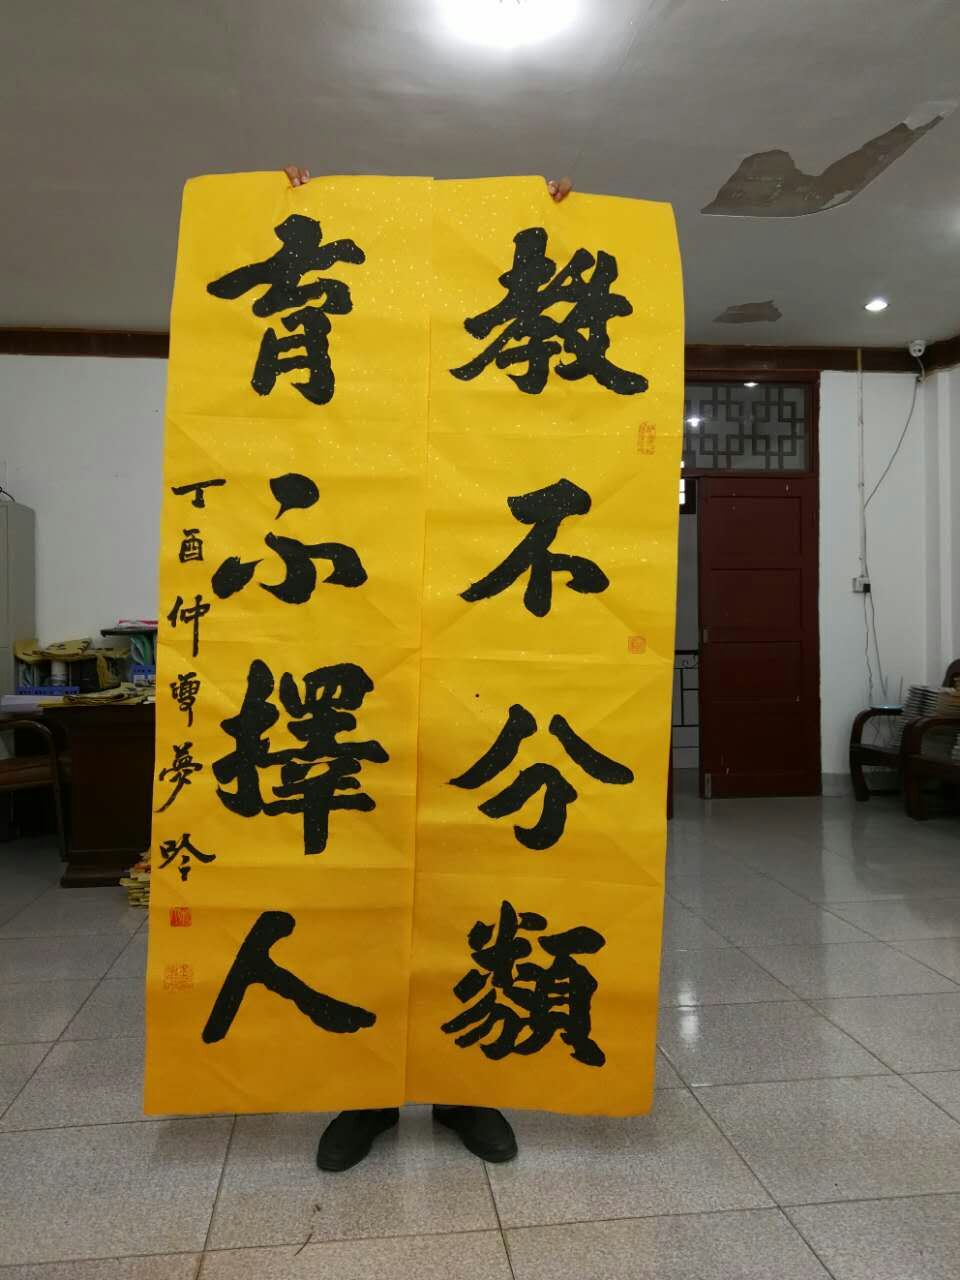 教不分類
育不擇人
丁酉仲夏夢吟